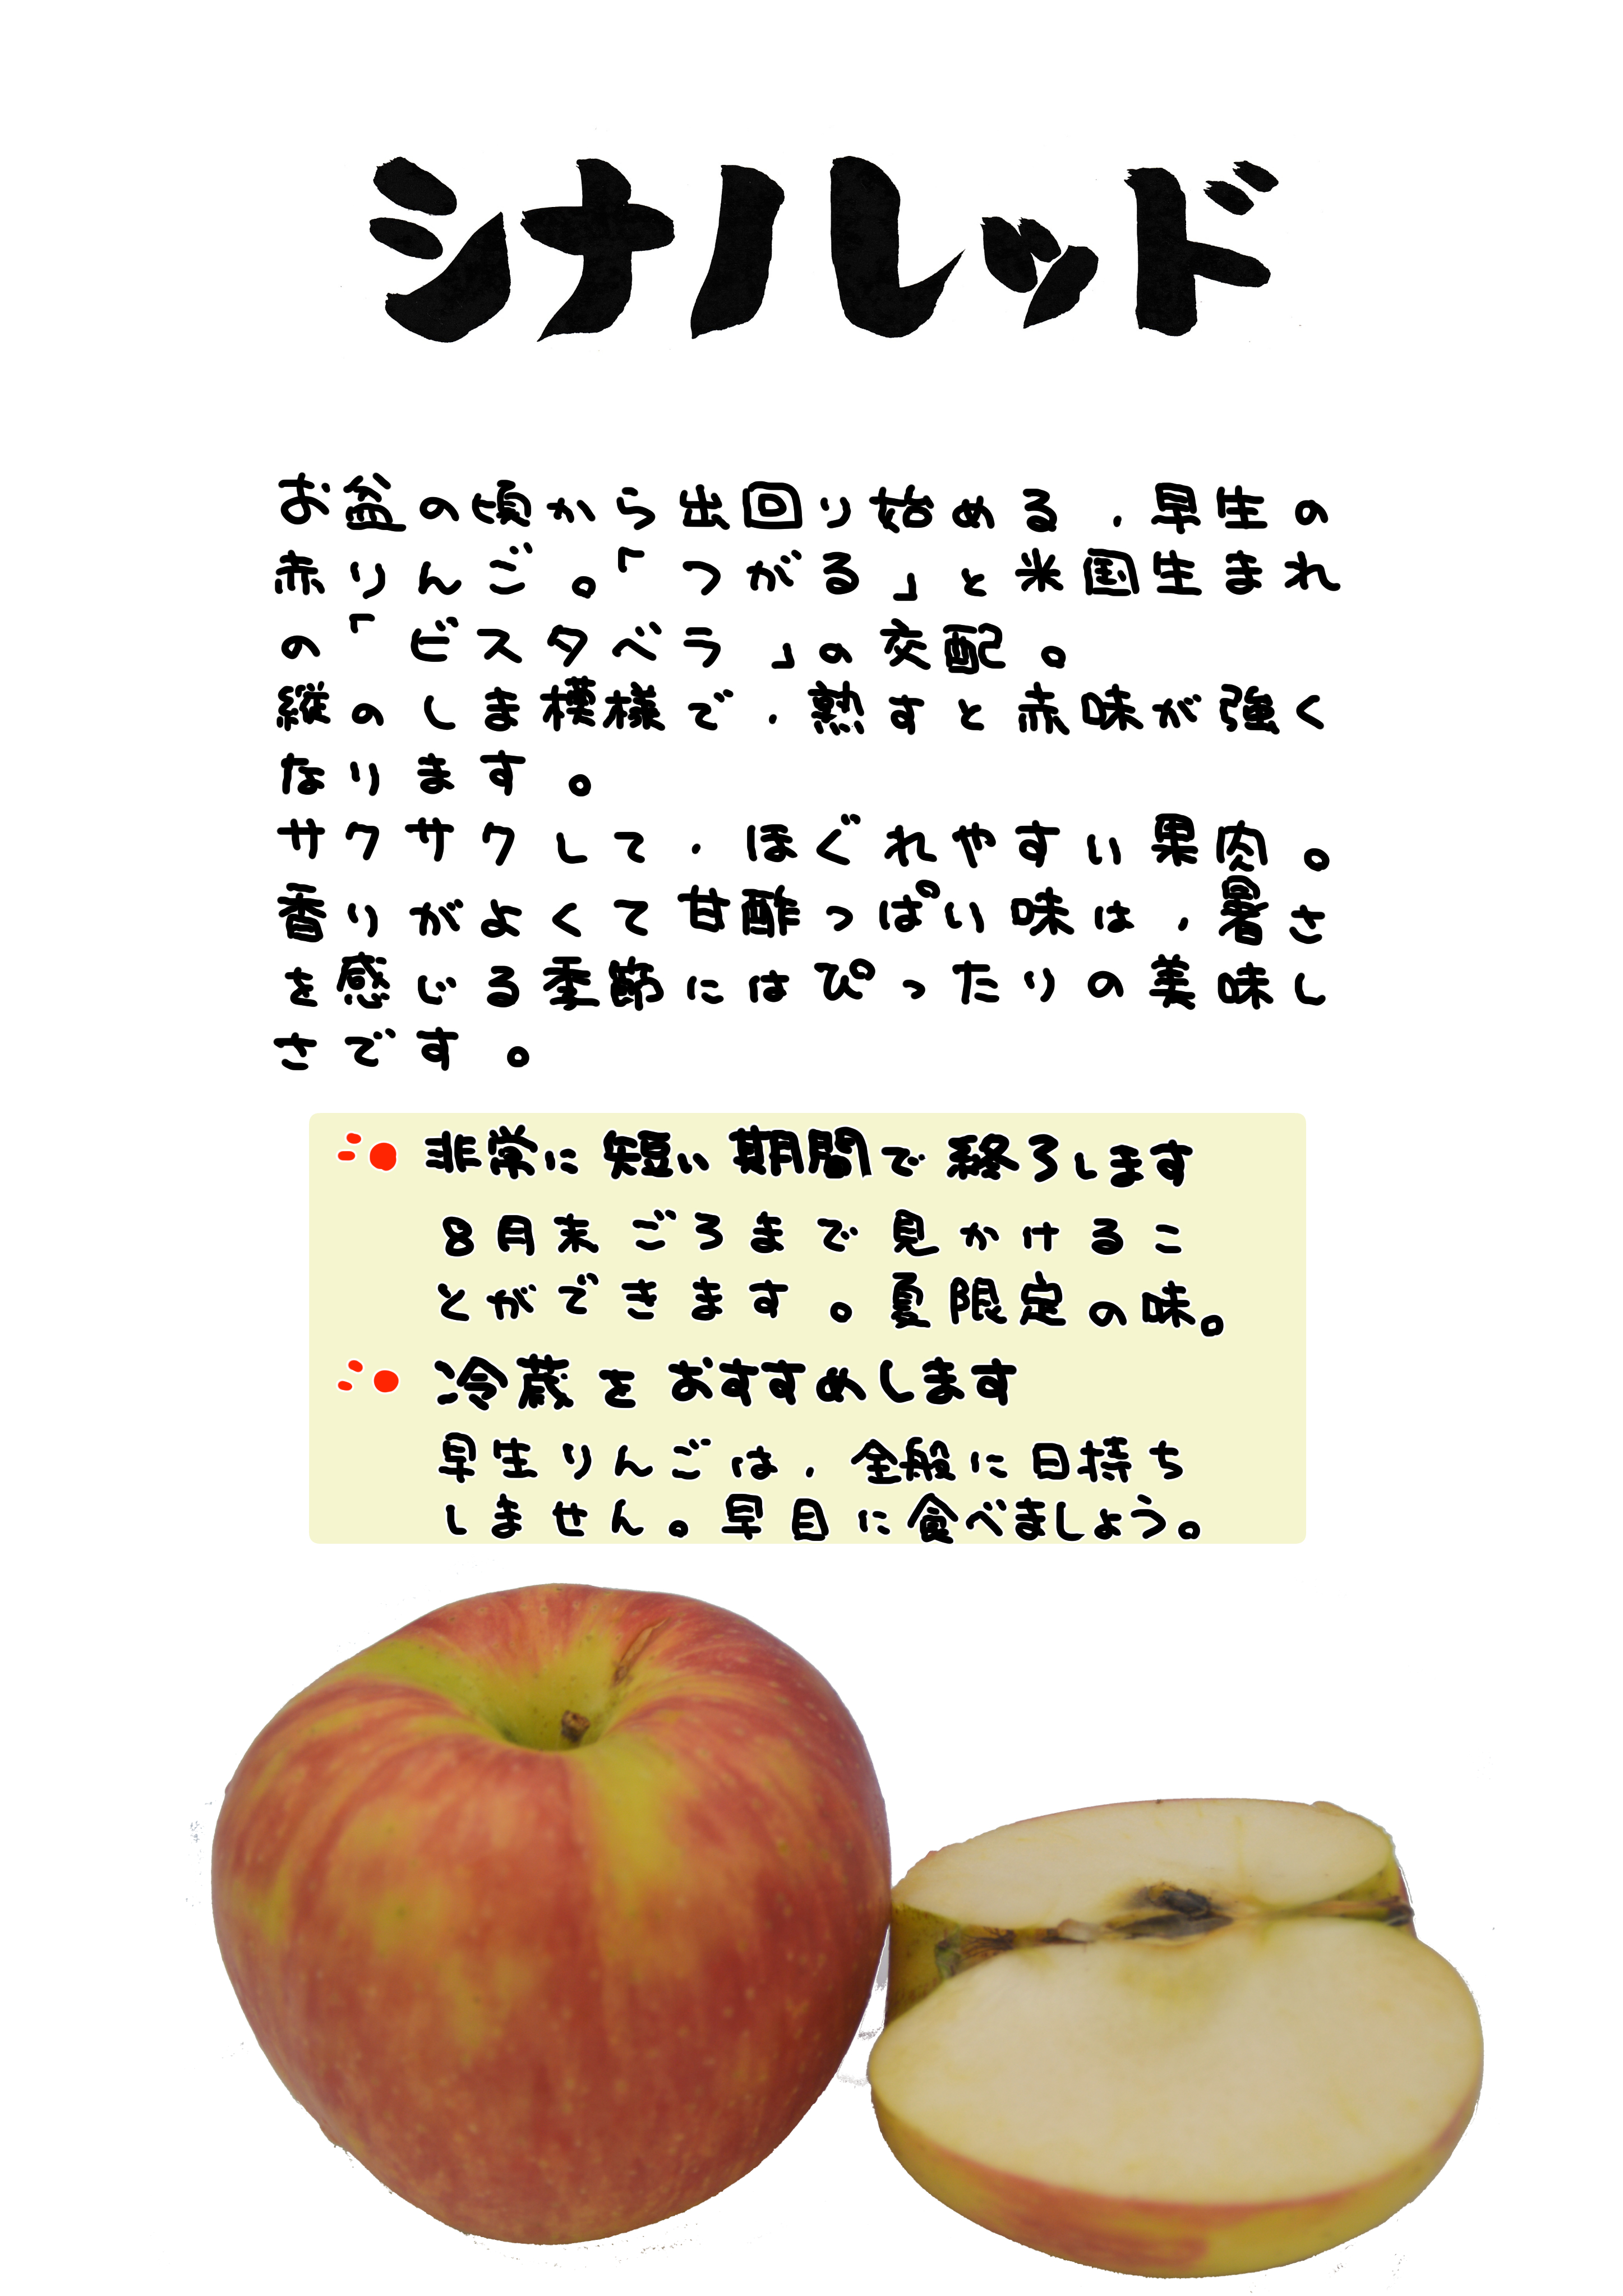 シナノレッド
お盆の頃から出回り始める、早生の
赤りんご。「つがる」と米国生まれ
の「ビスタベラ」の交配。
縦のしま模様で、熟すと赤味が強く
なります。
サクサクして、ほぐれやすい果肉。
香りがよくて甘酢っぱい味は、暑さ
を感じる季節にはぴったりの美味し
さです。
非常に短い期間で終了します
8月末ごろまで見かけるこ
とができます。夏限定の味。
冷蔵をおすすめします
早生りんごは、全般に日持ち
しません。早目に食べましょう。